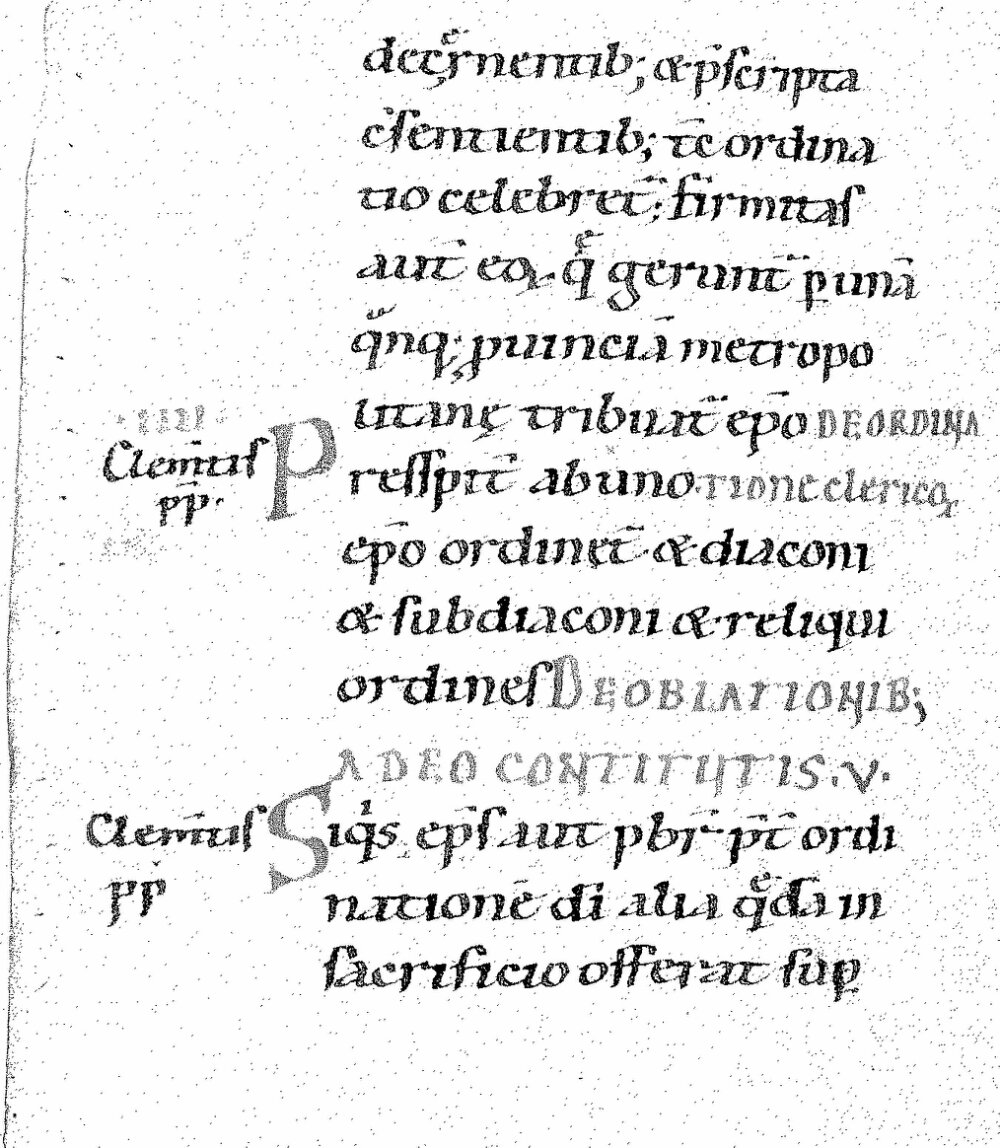 decęrnentib; & p̄scripta
c̄sentientib; tc̄ ordina
tio celebret̄; firmitas
aut̄ eoꝝ q̄ gerunt̄ p unā
q̄nq; ꝓuinciā metropo
litanę tribuat̄ ep̄o DE ORDINA
·IIII·
Clem̄tis
pp̄·
Presƀit̄ ab uno TIONE clericoꝝ
ep̄o ordinet̄ & diaconi
& subdiaconi & reliqui
ordines DE OBLATIONIB;
A DEO CONTITUTIS·V·
Clem̄tis
pp
Si q̇s ep̄s aut pbr̄ p̄t ordi
nationē di alia q̄dā in
sacrificio offerat sup